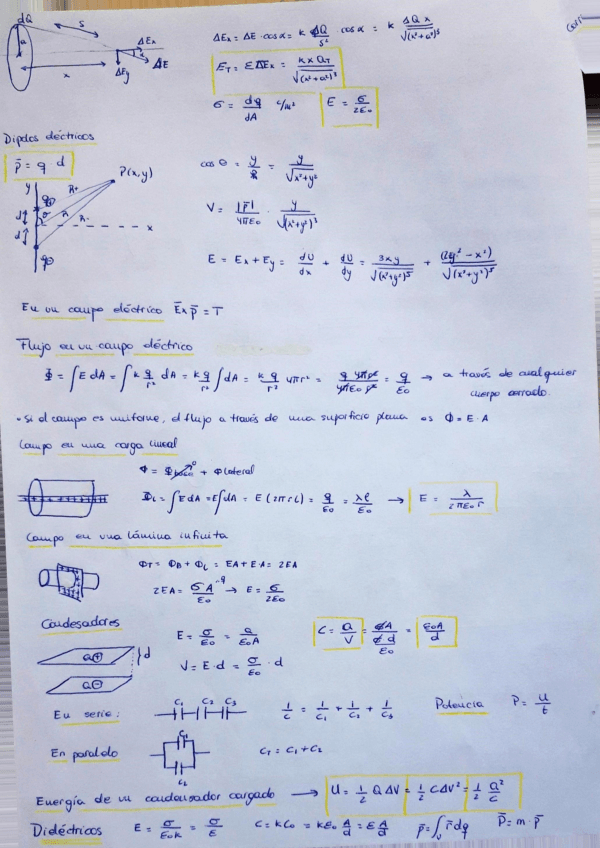 dQ
a
s
x
α
ΔEx
ΔEy
ΔE
ΔEx = ΔE · cos α = k ΔQ/s² · cos α = k ΔQ x/√(x²+a²)³
E_T = ΣΔEx = k x Q_T/√(x²+a²)³
σ = dq/dA C/m² E = σ/2ε₀
Dipolos eléctricos
p̄ = q · d
y
P(x,y)
R+
R
R-
θ
x
d
cos θ = y/R = y/√x²+y²
V = |p̄|/4πε₀ · y/√(x²+y²)³
E = Ex + Ey = dU/dx + dU/dy = 3xy/√(x²+y²)⁵ + (2y² - x²)/√(x²+y²)⁵
En un campo eléctrico Ē x p̄ = T
Flujo en un campo eléctrico
Φ = ∫E dA = ∫k q/r² dA = k q/r² ∫dA = k q/r² 4πr² = q 4πr²/4πε₀ r² = q/ε₀ → a través de cualquier
cuerpo cerrado.
• Si el campo es uniforme, el flujo a través de una superficie plana es Φ = E · A
Campo en una carga lineal
Φ = Φbase⁰ + Φlateral
Φ_L = ∫E dA = E∫dA = E (2πrL) = q/ε₀ = λℓ/ε₀ → E = λ/2πε₀ r
Campo en una lámina infinita
Φ_T = Φ_B + Φ_L = EA + E·A = 2EA
2EA = σA/ε₀ → E = σ/2ε₀
Condesadores
Q⊕
Q⊖
d
E = σ/ε₀ = Q/ε₀A
C = Q/V = σA/(σ d/ε₀) = ε₀A/d
V = E · d = σ/ε₀ · d
En serie:
C₁ C₂ C₃
1/C = 1/C₁ + 1/C₂ + 1/C₃
Potencia P = U/t
En paralelo
C₁
C₂
C_T = C₁ + C₂
Energía de un condensador cargado → U = 1/2 Q ΔV = 1/2 CΔV² = 1/2 Q²/C
Dieléctricos E = σ/ε₀k = σ/ε C = kC₀ = kε₀ A/d = ε A/d p̄ = ∫ r̄ dq P̄ = m · p̄